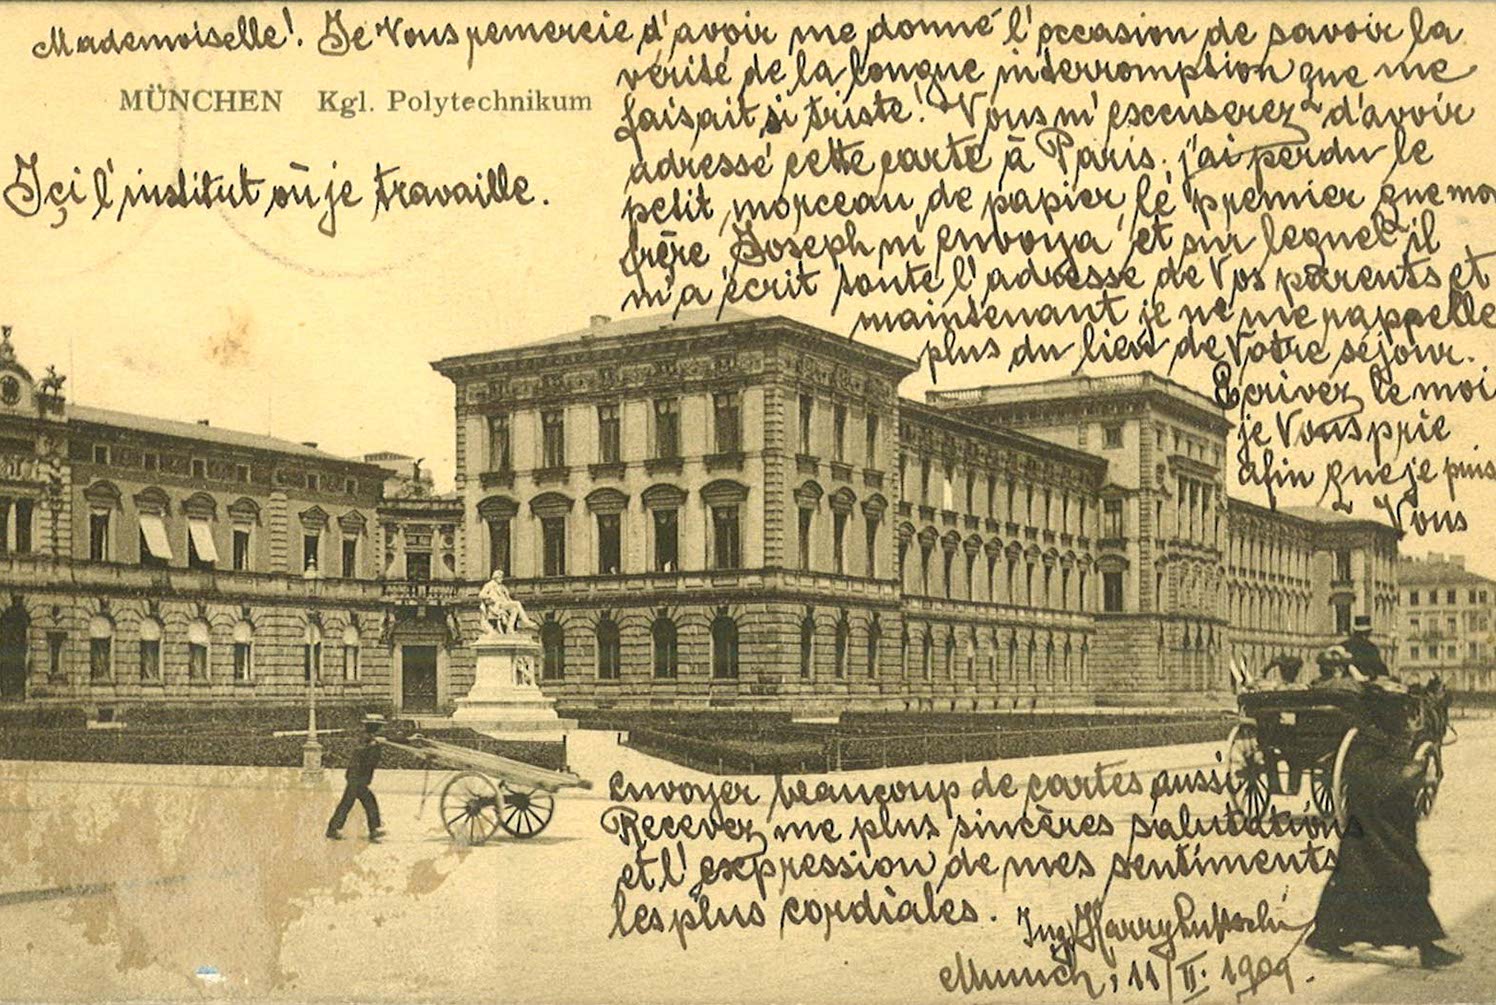 Mademoiselle! Je Vous remercie d'avoir me donné l'occasion de savoir la
MÜNCHEN Kgl. Polytechnikum
vérité de la longue interromption que me
faisait si triste! Vous m'excuserez d'avoir
adressé cette carte à Paris. j'ai perdu le
Içi l'institut où je travaille.
petit morceau de papier le premier que mon
frère Joseph m'envoya et sur lequel il
m'a écrit toute l'adresse de Vos parents et
maintenant je ne me rappelle
plus du lieu de Vôtre séjour.
Ecrivez le moi
je Vous prie
afin que je puis
Vous
envoyer beaucoup de cartes aussi
Recevez me plus sincères salutations
et l'expression de mes sentiments
les plus cordiales.
Ing Harry
Munich, 11/II. 1909.